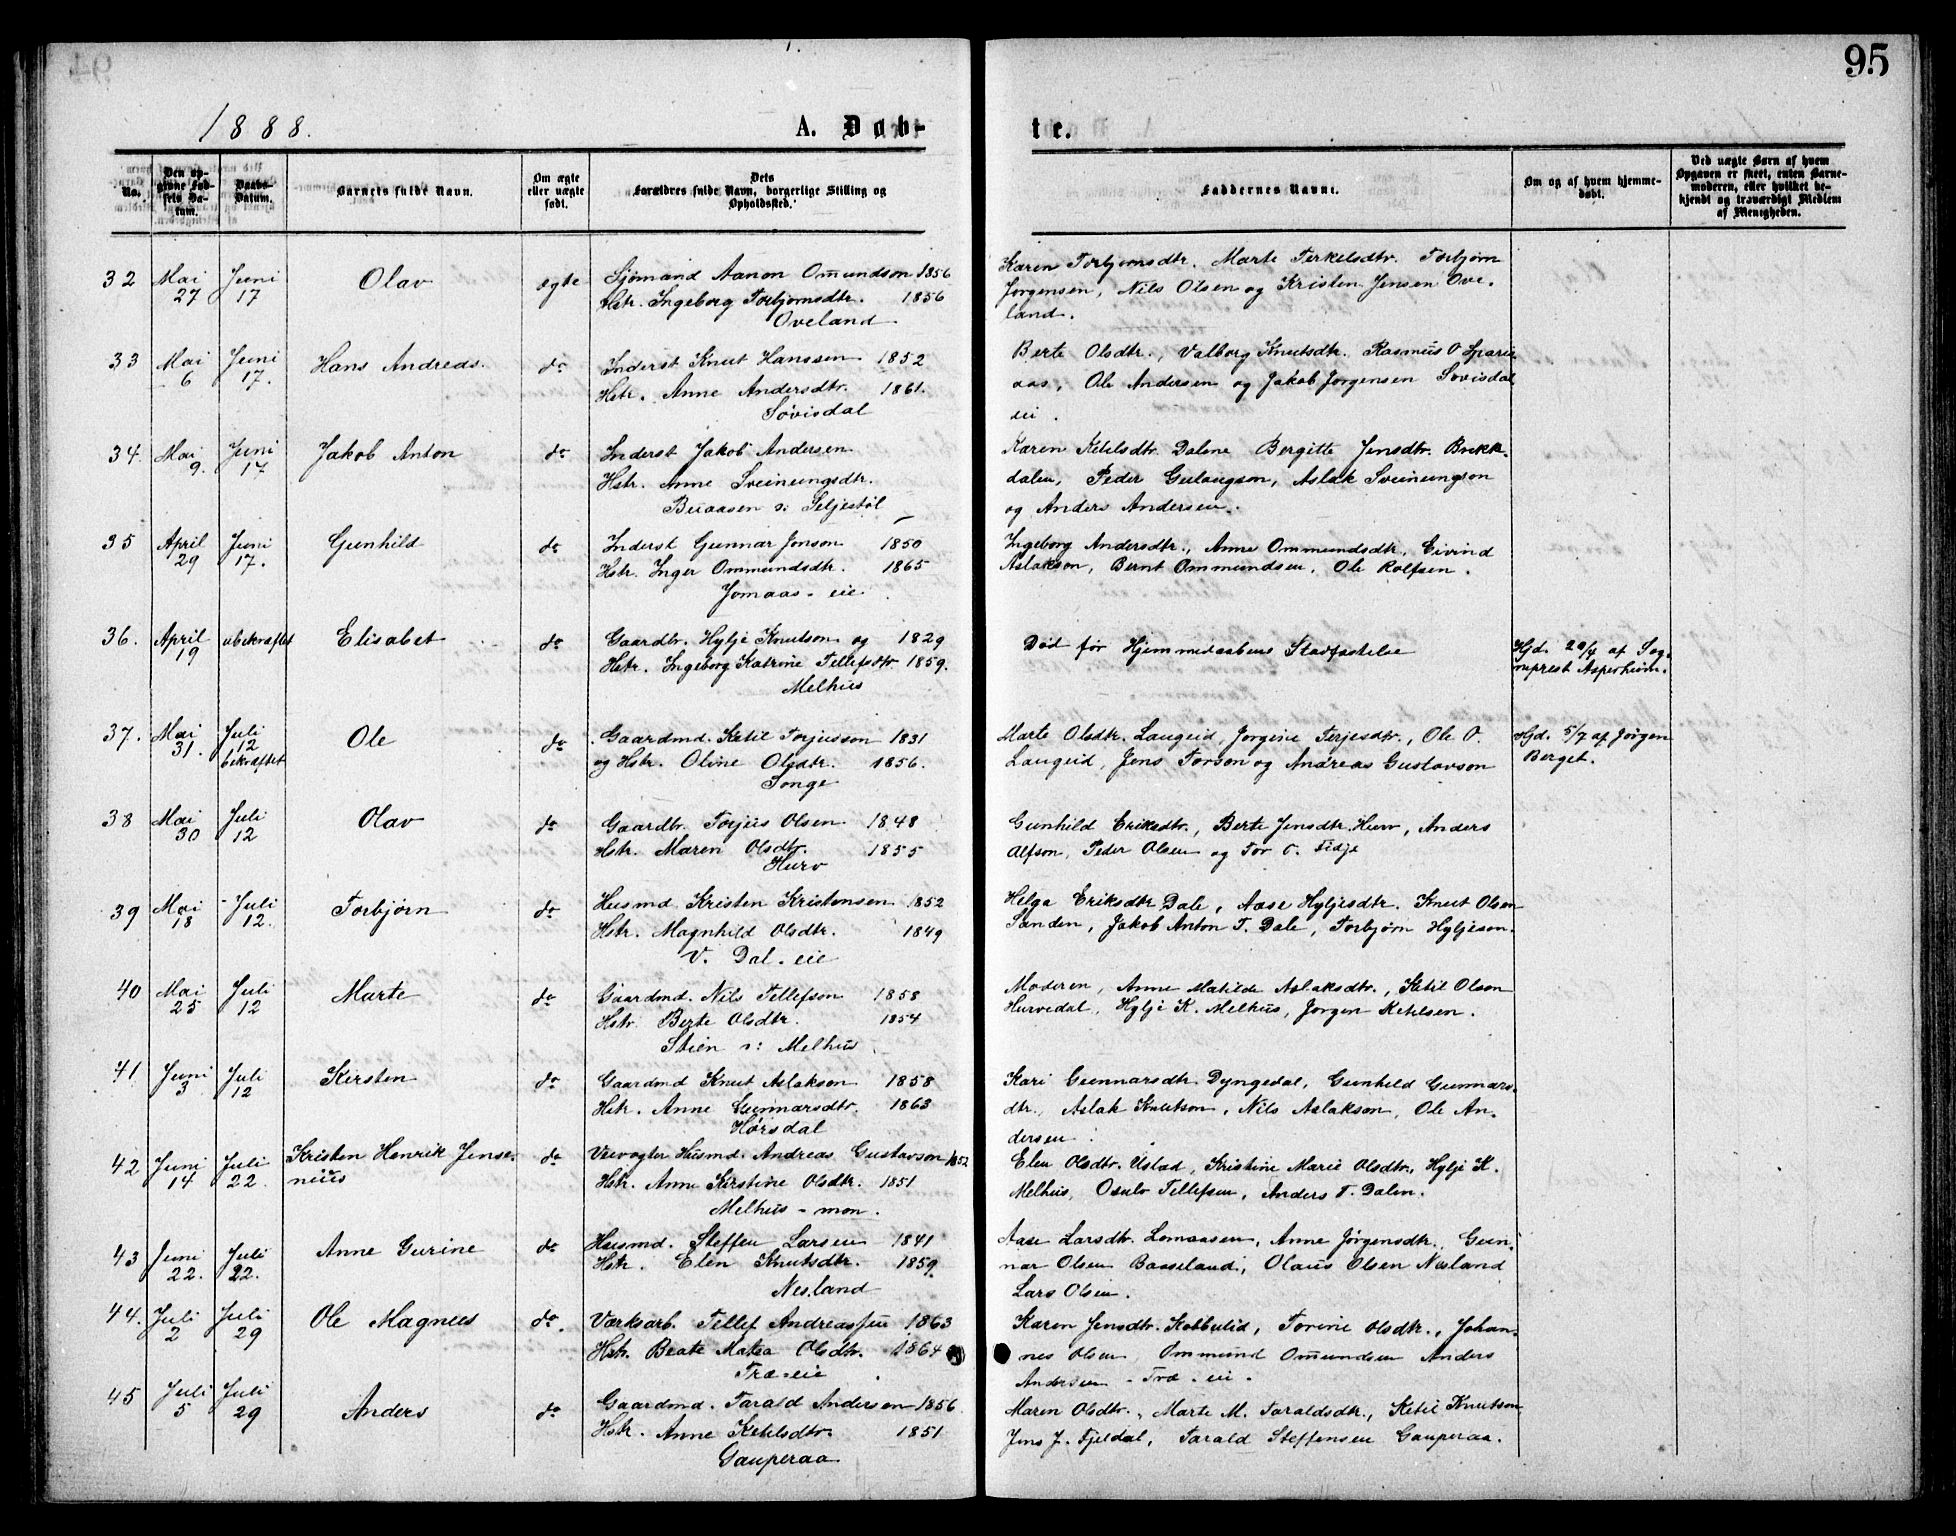 95
1888.
A. Døb-
te.
No.
Den op-
givne Fød-
sels Da-
tum.
Daabs-
Datum.
Barnets fulde Navn.
Om ægte
eller uægte
født.
Dets
Forældres fulde Navn, borgerlige Stilling og
Opholdssted.
Faddernes Navne.
Om og af hvem hjemme-
døbt.
Ved uægte Børn af hvem
Opgaven er skeet, enten Barne-
moderen, eller hvilket be-
kjendt og troværdigt Medlem
af Menigheden.
32 Mai 27 Juni 17 Olav ægte Sjømand Aanon Omundson 1856
Hstr. Ingeborg Torbjørnsdtr. 1856
Oveland
Karen Torbjørnsdtr. Marte Terkelsdtr. Torbjørn
Jørgensen, Nils Olsen og Kristen Jensen Ove-
land.
33 Mai 6 Juni 17. Hans Andreas. do Inderst Knut Hanssen 1852
Hstr. Anne Andersdtr. 1861.
Søvisdal
Berte Olsdtr., Valborg Knutsdtr. Rasmus O
aas, Ole Andersen og Jakob Jørgensen Søvisdal
eie.
34. Mai 9. Juni 17 Jakob Anton do Inderst Jakob Andersen
Hstr. Anne Sveinungsdtr.
Buaasen s: Seljestøl
Karen Ketelsdtr. Dalene Bergitte Jensdtr. Brekk-
dalen, Peder Gulaugson, Aslak Sveinungson
og Anders Andersen.
35 April 29 Juni 17. Gunhild do Inderst Gunnar Jonson 1850
Hstr. Inger Ommundsdtr. 1865
Jomaas-eie
Ingeborg Andersdtr., Anne Ommundsdtr, Eivind
Aslakson, Bernt Ommundsen, Ole Rolfsen.
36. April 19 ubekræftet Elisabet do Gaardbr. Hylje Knutson og 1829
Hstr. Ingeborg Katrine Tellefsdtr 1859.
Melhus
Død før Hjemmedaabens Stadfæstelse
Hjd. 20/4 af Sog-
neprest Asperheim.
37. Mai 31. Juli 12 bekræftet Ole do Gaardmd. Ketil Torjusson 1831
og Hstr. Oline Olsdtr. 1856.
Songe
Marte Olsdtr. Laugeid, Jørgine Terjesdtr., Ole O.
Laugeid, Jens Torson og Andreas Gustavson
Hjd. 5/7 af Jørgen
Berget.
38 Mai 30 Juli 12 Olav do Gaardbr. Torjus Olsen 1848
Hstr. Maren Olsdtr. 1855
Hurv
Gunhild Eriksdtr., Berte Jensdtr. Hurv, Anders
Alfson, Peder Olsen og Tor O. Tidje
39 Mai 18 Juli 12. Torbjørn do Husmd. Kristen Kristensen 1852
Hstr. Magnhild Olsdtr. 1849
V. Dal-eie
Helga Eriksdtr Dale, Aase Hyljesdtr. Knut Olsen
Sanden, Jakob Anton T. Dale, Torbjørn Hyljeson.
40 Mai 25 Juli 12 Marte do Gaardmd. Nils Tellefson 1858
Hstr Berte Olsdtr. 1854
Stien s: Melhus
Moderen, Anne Matilde Aslaksdtr., Ketil Olson
Hurvedal, Hylje K. Melhus, Jørgen Ketelsen.
41 Juni 3 Juli 12 Kirsten do Gaardmd Knut Aslakson 1858
Hstr. Anne Gunnarsdtr. 1863
Hørsdal
Kari Gunnarsdtr Dyngedal, Gunhild Gunnars-
dtr., Aslak Knutson, Nils Aslakson, Ole An-
dersen.
42 Juni 14 Juli 22 Kristen Henrik Jense- do Veivogter Husmd. Andreas Gustavson 1852
nius Hstr. Anne Kirstine Olsdtr. 1851
Melhus-mon.
Elen Olsdtr. Ustad, Kristine Marie Olsdtr, Hylje K.
Melhus, Osulv Tellefsen, Anders T. Dalen.
43 Juni 22. Juli 22. Anne Gurine do Husmd. Steffen Larsen 1841
Hstr. Elen Knutsdtr. 1859.
Nesland
Aase Larsdtr. Lomaasen, Anne Jørgensdtr., Gun-
nar Olsen Baaseland, Olaus Olsen Nesland
Lars Olsen.
44. Juli 2 Juli 29 Ole Magnus do. Værksarb. Tellef Andreassen 1863
Hstr. Beate Matea Olsdtr. 1864
Træ-eie
Karen Jensdtr. Kabbulid, Torine Olsdtr., Johan-
nes Olsen, Ommund Omundsen Anders
Andersen - Træ-eie.
45 Juli 5 Juli 29 Anders do Gaardmd. Tarald Andersen 1856
Hstr. Anne Ketelsdtr. 1851
Gauperaa
Maren Olsdtr., Marte M. Taraldsdtr., Ketil Knutson,
Jens J. Fjeldal, Tarald Steffensen Gauperaa.